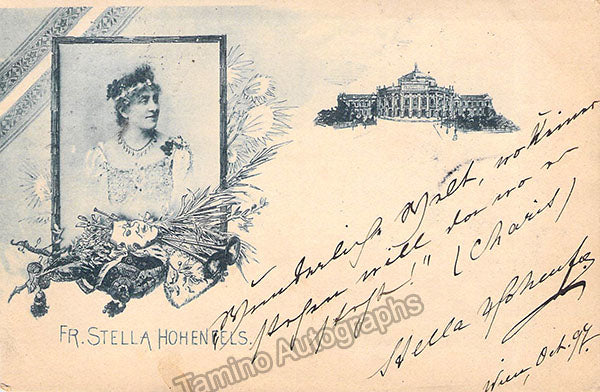 FR. STELLA HOHENFELS.
„Wunderliche Welt, wo Keiner
stehen will dor wo er
steht!" (Charis)
Stella Hohenfels
Wien, Oct. 97.
Tamino Autographs